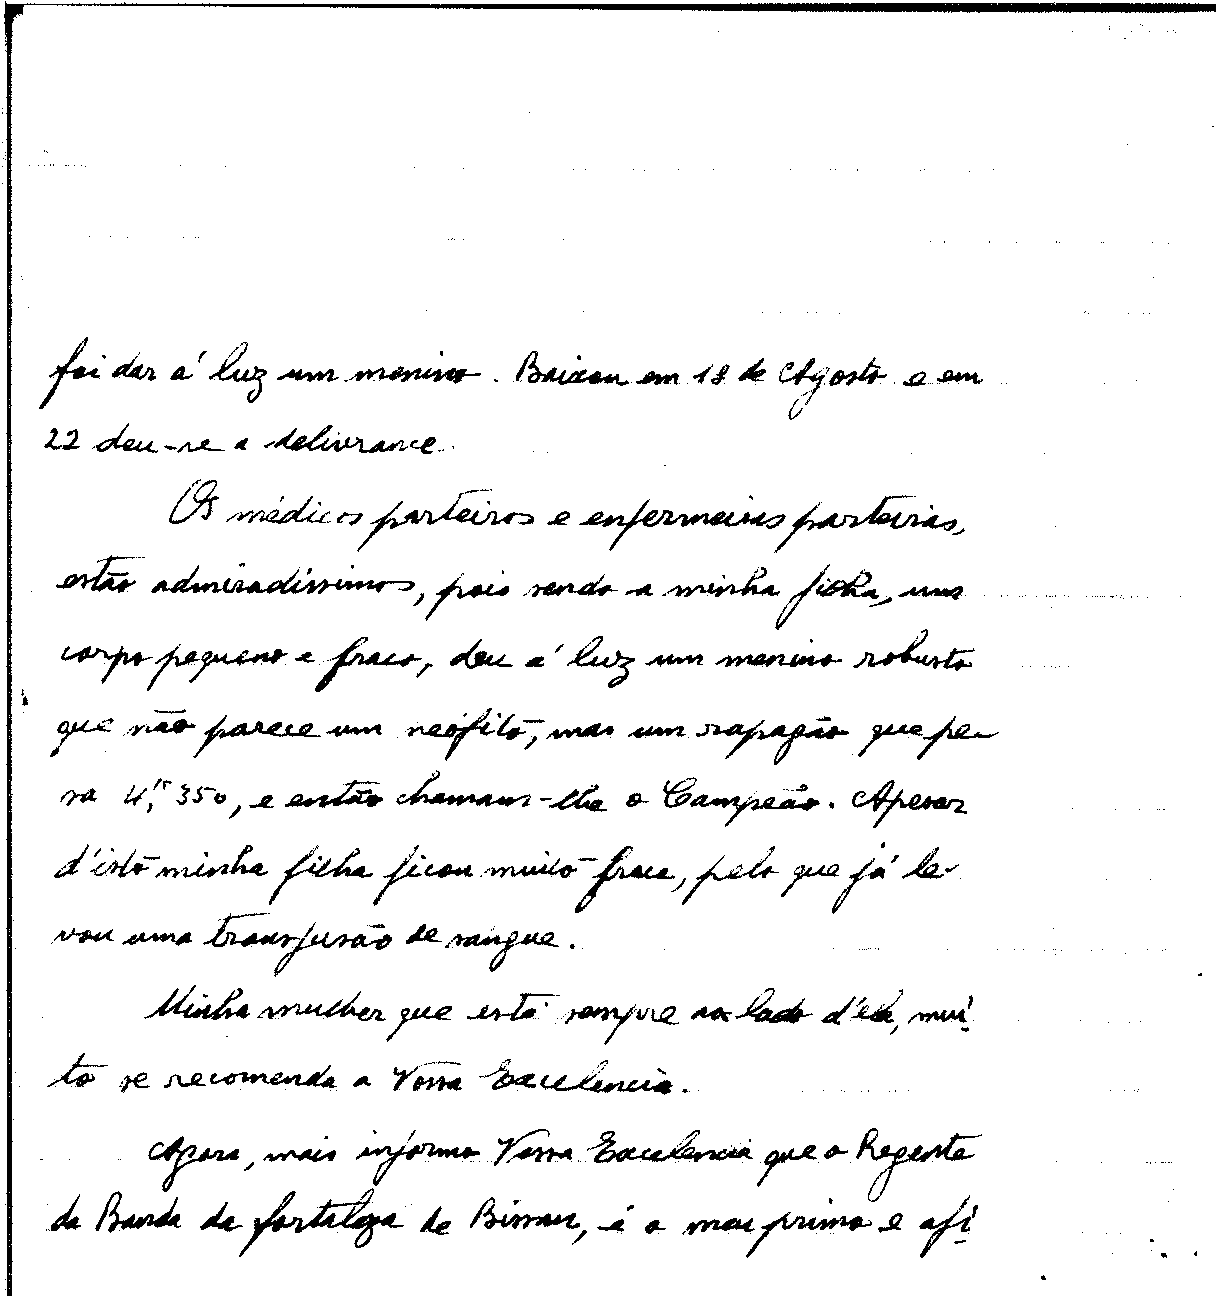 foi dar á luz um menino. Baixou em 18 de Agosto e em
22 deu-se a delivrance.
Os médicos parteiros e enfermeiras parteiras,
estão admiradissimos, pois sendo a minha filha, um
corpo pequeno e fraco, deu á luz um menino robusto
que não parece um neófito, mas um rapagão que pe-
sa 4,350, e então chamam-lhe o Campeão. Apesar
d'isto minha filha ficou muito fraca, pelo que já le-
vou uma transfusão de sangue.
Minha mulher que está sempre ao lado d'ela, mui-
to se recomenda a Vossa Excelencia.
Agora, mais informo Vossa Excelencia que o Regente
da Banda da fortaleza de Bissau, é o meu primo e afi-